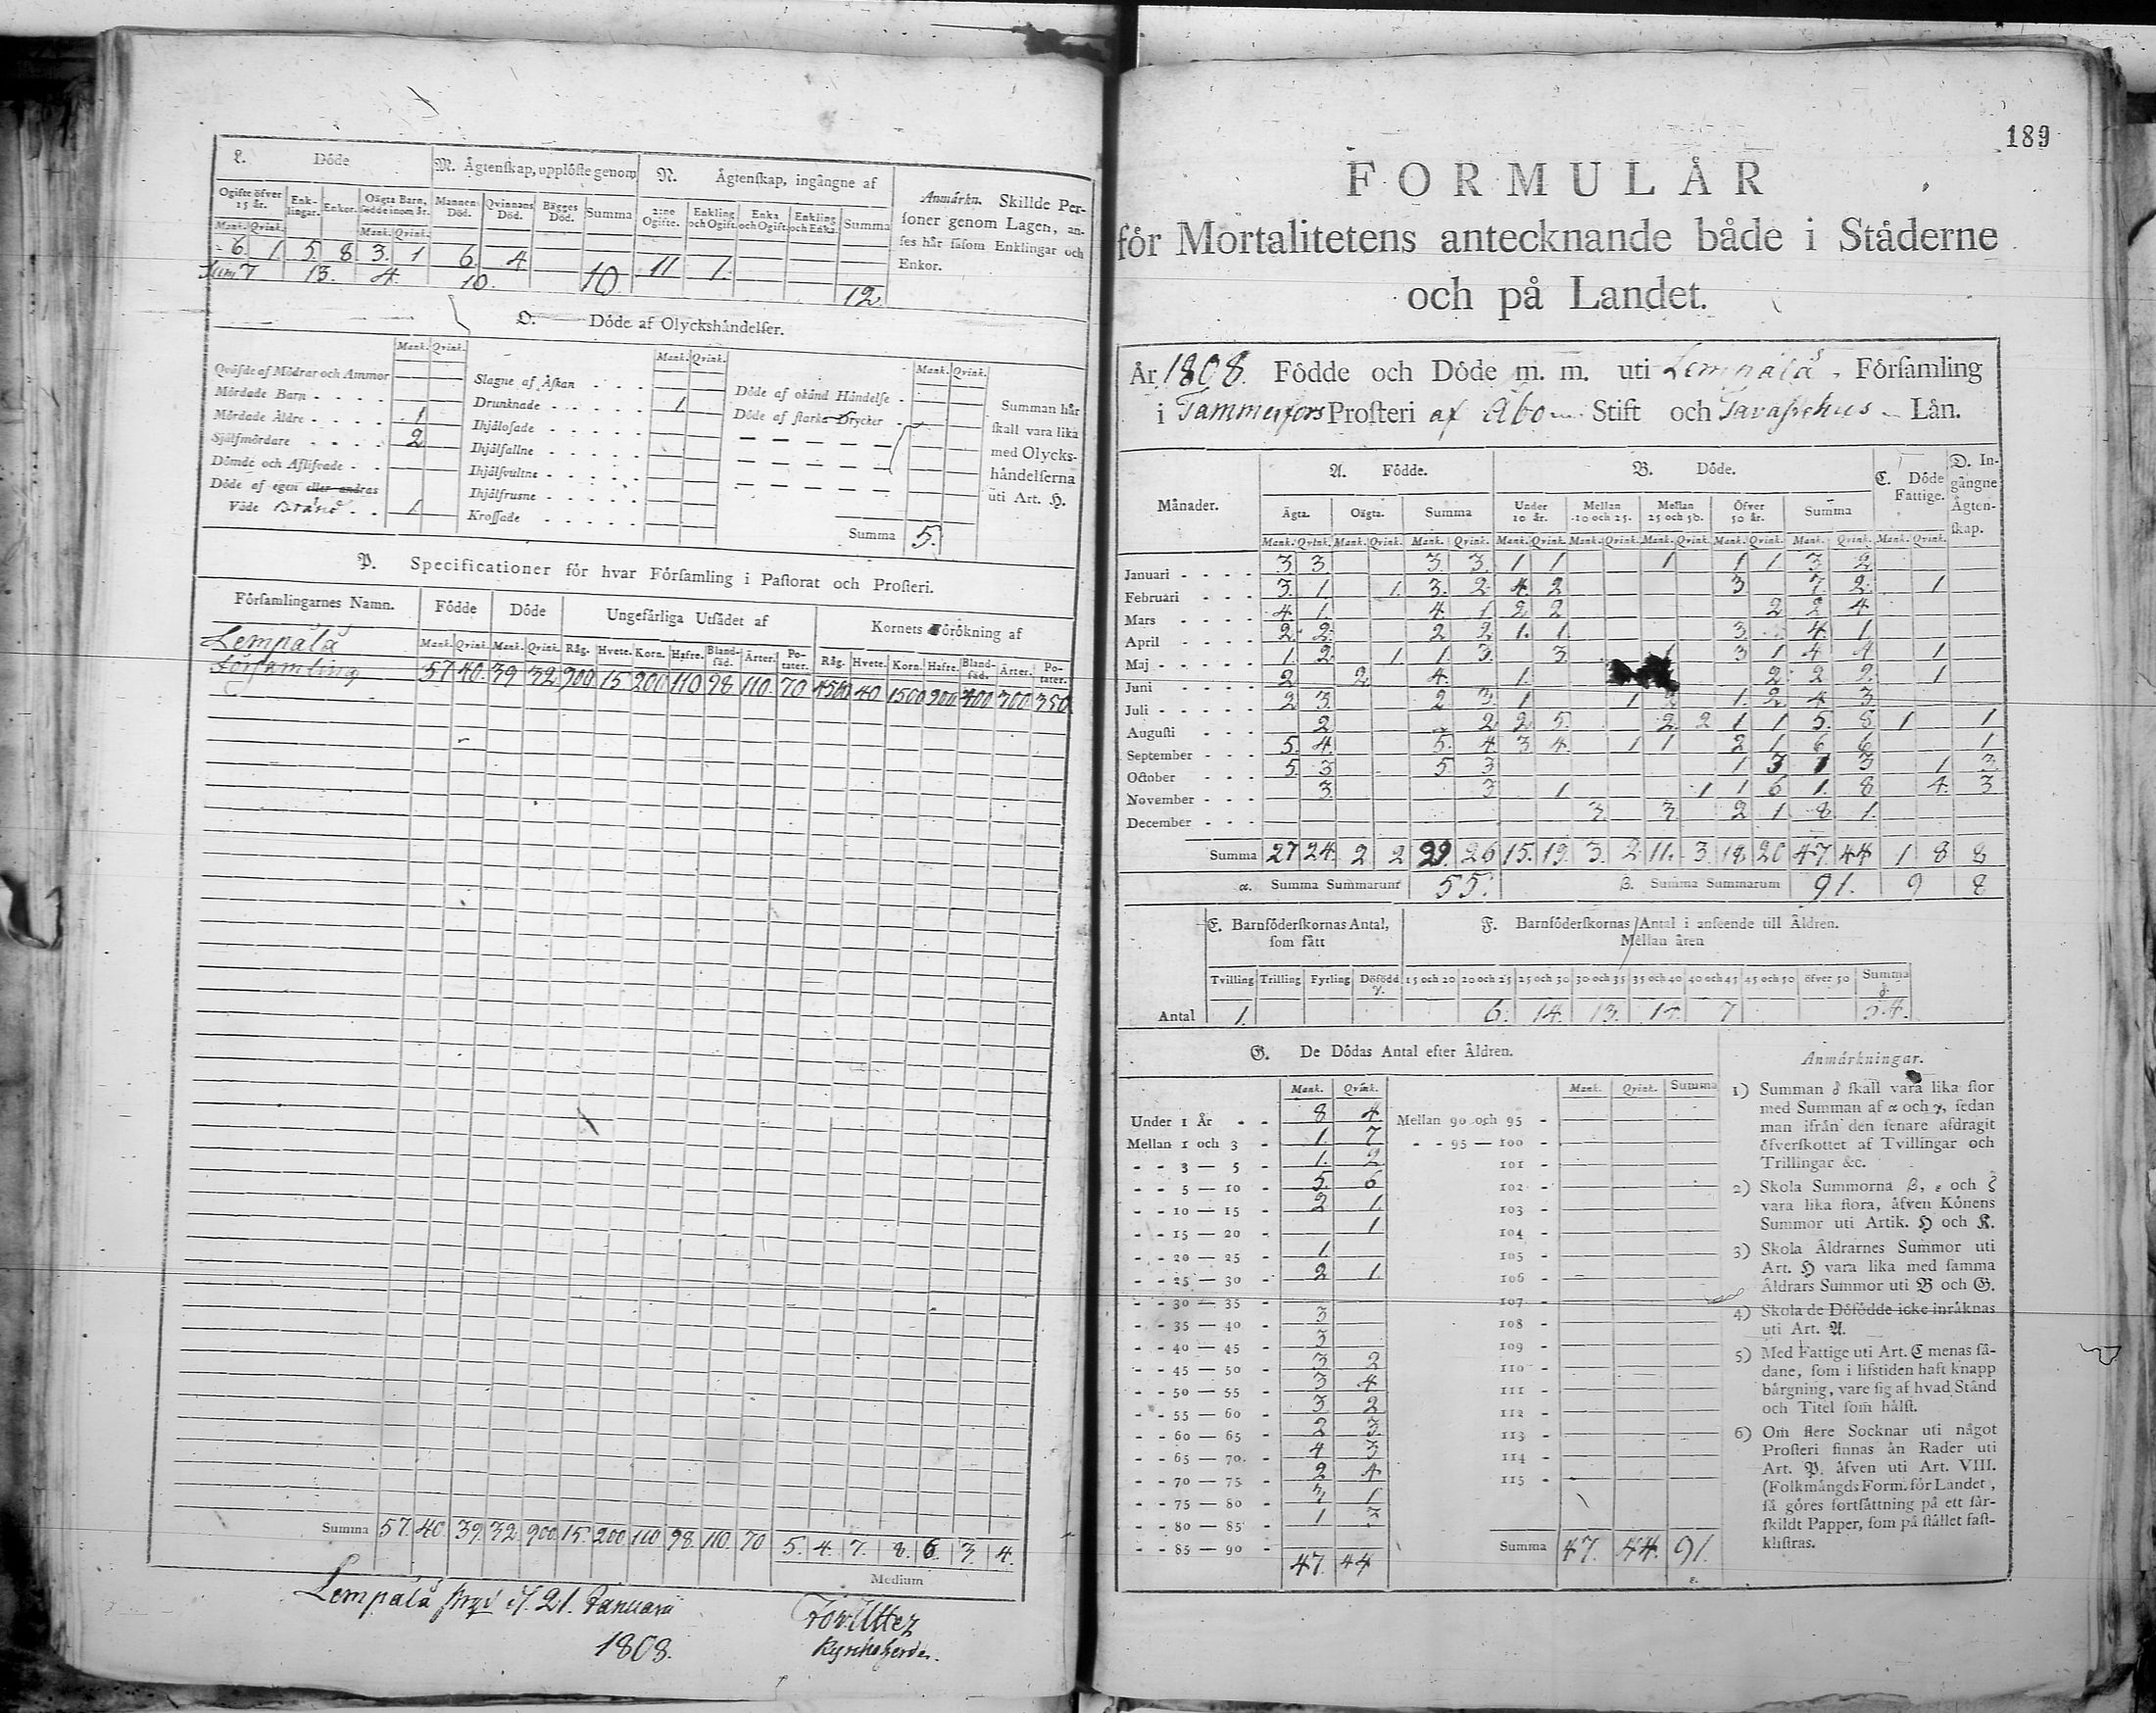 L. Döde
M. Ägtenſkap, upplöſte genom
N. Ägtenſkap, ingångne af
Anmärkn. Skillde Per-
ſoner genom Lagen, an-
ſes här ſåſom Enklingar och
Enkor.
Ogifte öfver 15 år. Enk-lingar. Enkor. Oägta Barn, födde inom år. Mannens Död. Qvinnans Död. Bägges Död. Summa 2:ne Ogifte. Enkling och Ogift. Enka och Ogift. Enkling och Enka. Summa
Mank. Qvink. Mank. Qvink.
6. 1 5 8 3. 1 6. 4. 10 11 1. 12.
Sum 7 13. 4. 10.
O. Döde af Olyckshändelſer.
Mank. Qvink. Mank. Qvink. Mank. Qvink.
Qväfde af Mödrar och Ammor
Mördade Barn
Mördade Äldre 1
Sjålfmördare 2
Dömde och Aflifvade
Döde af egen eller andras
Våde Brånd 1
Slagne af Åſkan
Drunknade 1
Ihjälofade
Ihjälfallne
Ihjälſvultne
Ihjälfrusne
Kroſſade
Döde af okänd Händelſe
Döde af ſtarka Drycker
Summa 5.
Summan här
ſkall vara lika
med Olycks-
händelſerna
uti Art. H.
P. Specificationer för hvar Förſamling i Paſtorat och Proſteri.
Förſamlingarnes Namn. Födde Döde Ungefärliga Utſädet af Kornets Förökning af
Mank. Qvink. Mank. Qvink. Råg. Hvete. Korn. Hafre. Bland-ſäd. Ärter. Po-tater. Råg. Hvete. Korn. Hafre. Bland-ſäd. Ärter. Po-tater.
Lempälä
Församling 57 40. 39 32 900 15 200 110 98 110. 70 4500 40 1500 900 400 300 350
Summa 57. 40. 39. 32 900 15. 200 110 98. 110. 70 5. 4. 7. 8. 6. 3. 4.
Medium
Lempälä 21. Januarii
1808.
Kyrkoherde.
189
FORMULÄR
för Mortalitetens antecknande både i Städerne
och på Landet.
År 1808. Födde och Döde m. m. uti Lempälä Förſamling
i Tammerfors Proſteri af Åbo Stift och Tavastehus Län.
Månader. A. Födde. B. Döde. C. Döde Fattige. D. In-gångne Ägten-ſkap.
Ägta. Oägta. Summa Under 10 år. Mellan 10 och 25. Mellan 25 och 50. Öfver 50 år. Summa
Mank. Qvink. Mank. Qvink. Mank. Qvink. Mank. Qvink. Mank. Qvink. Mank. Qvink. Mank. Qvink. Mank. Qvink. Mank. Qvink.
Januari 3 3 3. 3. 1 1 1 1 1 3 2
Februari 3. 1 1. 3. 2 4. 2 3 7. 2. 1
Mars 4. 1. 4. 1 2 2 2 2 4
April 2. 2. 2 2 1. 1 3 4 1
Maj 1. 2 1 1. 3. 3 1 3 1 4 4 1
Juni 2 2 4. 1. 2 2 2. 1
Juli 2 3 2 3. 1 1 2 1. 2 4 3
Auguſti 2 2 2 5. 2 2 1 1 5. 8 1 1
September 5. 4. 5. 4 3 4. 1 1 2 1 6 6 1
October 5 3 5 3 1 3 1 3 1 3
November 3. 3 1 1 1 6 1. 8 4. 3
December 3 3 2 1 8 1.
Summa 27 24. 2 2 29. 26 15. 19. 3. 2 11. 3. 18. 20 47. 44 1 8 8
α. Summa Summarum 55. β. Summa Summarum 91. 9 8
E. Barnföderſkornas Antal, ſom fått
F. Barnföderſkornas Antal i anſeende till Åldren.
Mellan åren
Tvilling Trilling Fyrling Döfödd γ. 15 och 20 20 och 25 25 och 30 30 och 35 35 och 40 40 och 45 45 och 50 öfver 50 Summa δ.
Antal 1. 6. 14. 13. 14. 7 54.
G. De Dödas Antal efter Åldren.
Mank. Qvink. Mank. Qvink. Summa
Under 1 År 8 4 Mellan 90 och 95
Mellan 1 och 3 1. 7 95 — 100
3 — 5 1. 2 101
5 — 10 5. 6 102
10 — 15 2 1. 103
15 — 20 1 104
20 — 25 1 105
25 — 30 2 1. 106
30 — 35 107
35 — 40 3 108
40 — 45 3 109
45 — 50 3 2 110
50 — 55 3 4 111
55 — 60 3 2 112
60 — 65 2 3 113
65 — 70 4 3 114
70 — 75 2 4 115
75 — 80 3 1
80 — 85 1 3
85 — 90
47. 44 Summa 47. 44. 91.
ε.
Anmärkningar.
1) Summan δ ſkall vara lika ſtor
med Summan af α och γ, ſedan
man ifrån den ſenare afdragit
öfverſkottet af Tvillingar och
Trillingar &c.
2) Skola Summorna β, ε och ζ
vara lika ſtora, äfven Könens
Summor uti Artik. H och K.
3) Skola Åldrarnes Summor uti
Art. H vara lika med ſamma
Åldrars Summor uti B och G.
4) Skola de Döfödde icke inräknas
uti Art. A.
5) Med Fattige uti Art. C menas ſå-
dane, ſom i lifstiden haft knapp
bärgning, vare ſig af hvad Stånd
och Titel ſom hålſt.
6) Om flere Socknar uti något
Proſteri finnas än Rader uti
Art. P. äfven uti Art. VIII.
(Folkmängds Form. för Landet,
ſå göres fortſättning på ett ſär-
ſkildt Papper, ſom på ſtället faſt-
kliſtras.